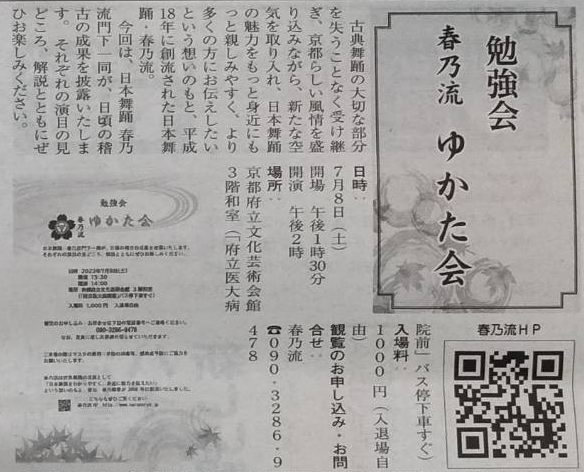 勉強会
春乃流 ゆかた会
古典舞踊の大切な部分
を失うことなく受け継
ぎ、京都らしい風情を盛
り込みながら、新たな空
気を取り入れ、日本舞踊
の魅力をもっと身近にも
っと親しみやすく、より
多くの方にお伝えしたい
という想いのもと、平成
18年に創流された日本舞
踊・春乃流。
今回は、日本舞踊 春乃
流門下一同が、日頃の稽
古の成果を披露いたしま
す。それぞれの演目の見
どころ、解説とともにぜ
ひお楽しみください。
日時:
7月8日(土)
開場 午後1時30分
開演 午後2時
場所:
京都府立文化芸術会館
3階和室(「府立医大病
院前」バス停下車すぐ)
入場料:
1000円(入退場自
由)
観覧のお申し込み・お問
合せ:
春乃流
☎090・3286・9
478
春乃流HP
勉強会
春乃流 ゆかた会
日時 2023年7月8日(土)
開場 13:30
開演 14:00
入場料 1,000円 (入退場自由)
090-3286-9478